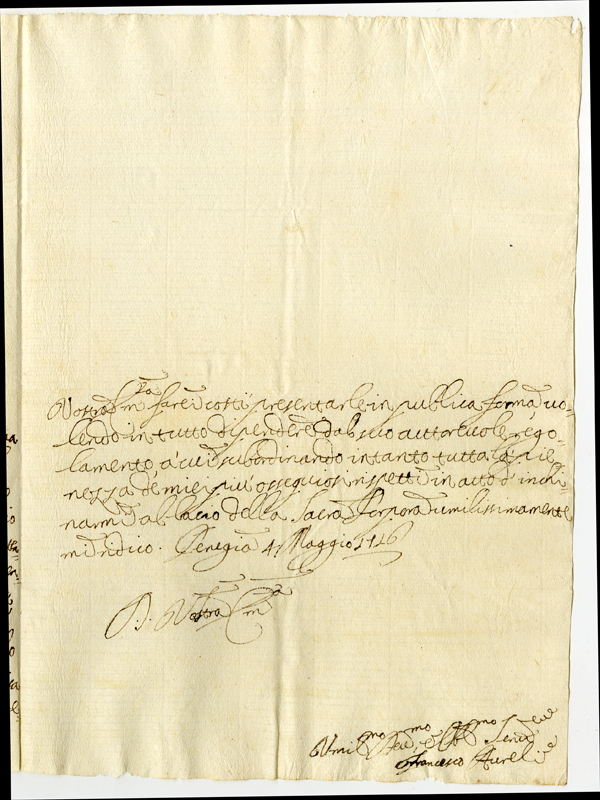 Vostra Em.za sarei costì presentarle in publica forma, vo-
lendo in tutto dipendere dal suo auttorevole rego-
lamento, a' cui subordinando intanto tutta la pie-
nezza de miei più ossequiosi rispetti in atto d' inchi-
narmi al bacio della Sacra Porpora umilissimamente
mi dico. Venezia 4 Maggio 1716
D. Vostra Em.a
Umil.mo Dev.mo et Obl.mo Serv.e
Francesco Aureli